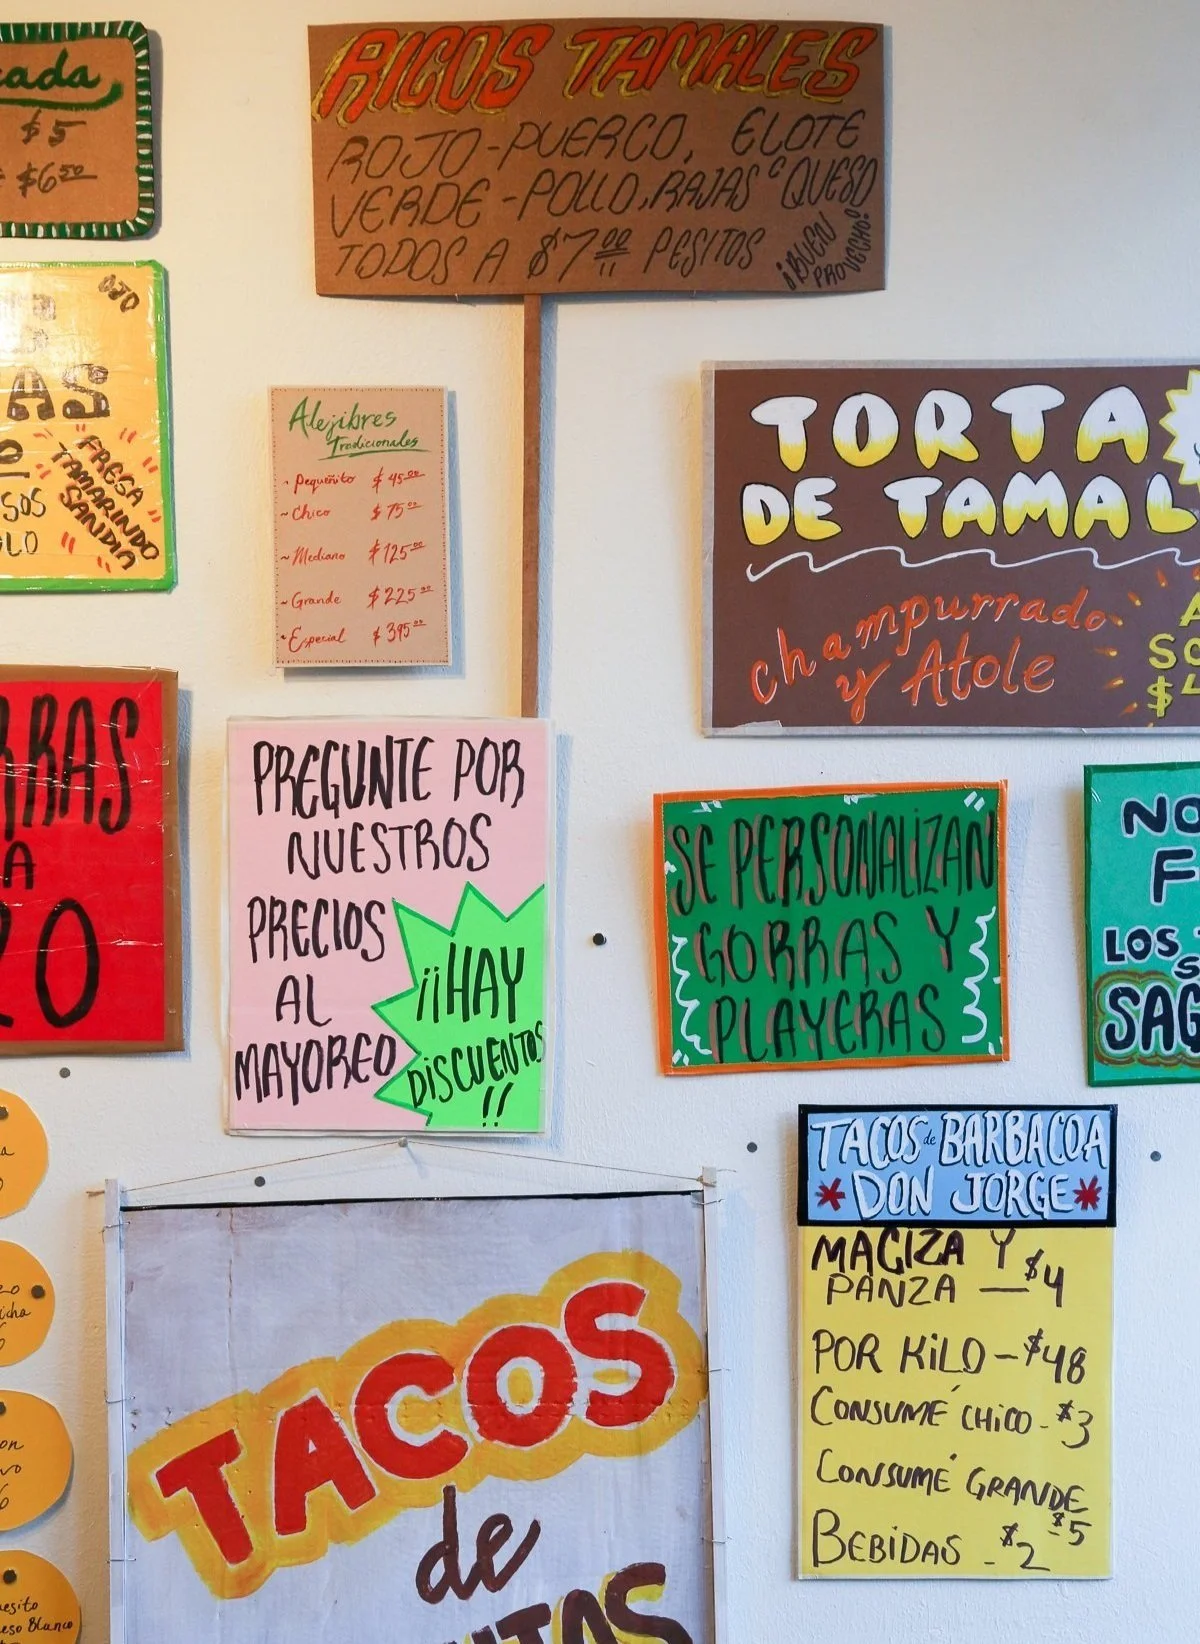 $5
$6⁵⁰
OJO
FRESA
TAMARINDO
SANDIA
RICOS TAMALES
ROJO-PUERCO, ELOTE
VERDE-POLLO, RAJAS C QUESO
TODOS A $7.00 PESITOS
¡BUEN
PROVECHO!
Alejibres
Tradicionales
- Pequeñito $45.00
~ Chico $75.00
~ Mediano $125.00
~ Grande $225.00
- Especial $395.00
TORTA
DE TAMAL
champurrado
y Atole
PREGUNTE POR
NUESTROS
PRECIOS
AL
MAYOREO
¡¡HAY
DISCUENTOS
!!
SE PERSONALIZAN
GORRAS Y
PLAYERAS
NO
LOS
TACOS de BARBACOA
* DON JORGE *
MACIZA Y
PANZA — $4
POR KILO - $48
CONSUMÉ CHICO - $3
CONSUMÉ GRANDE
- $5
BEBIDAS - $2
TACOS
de